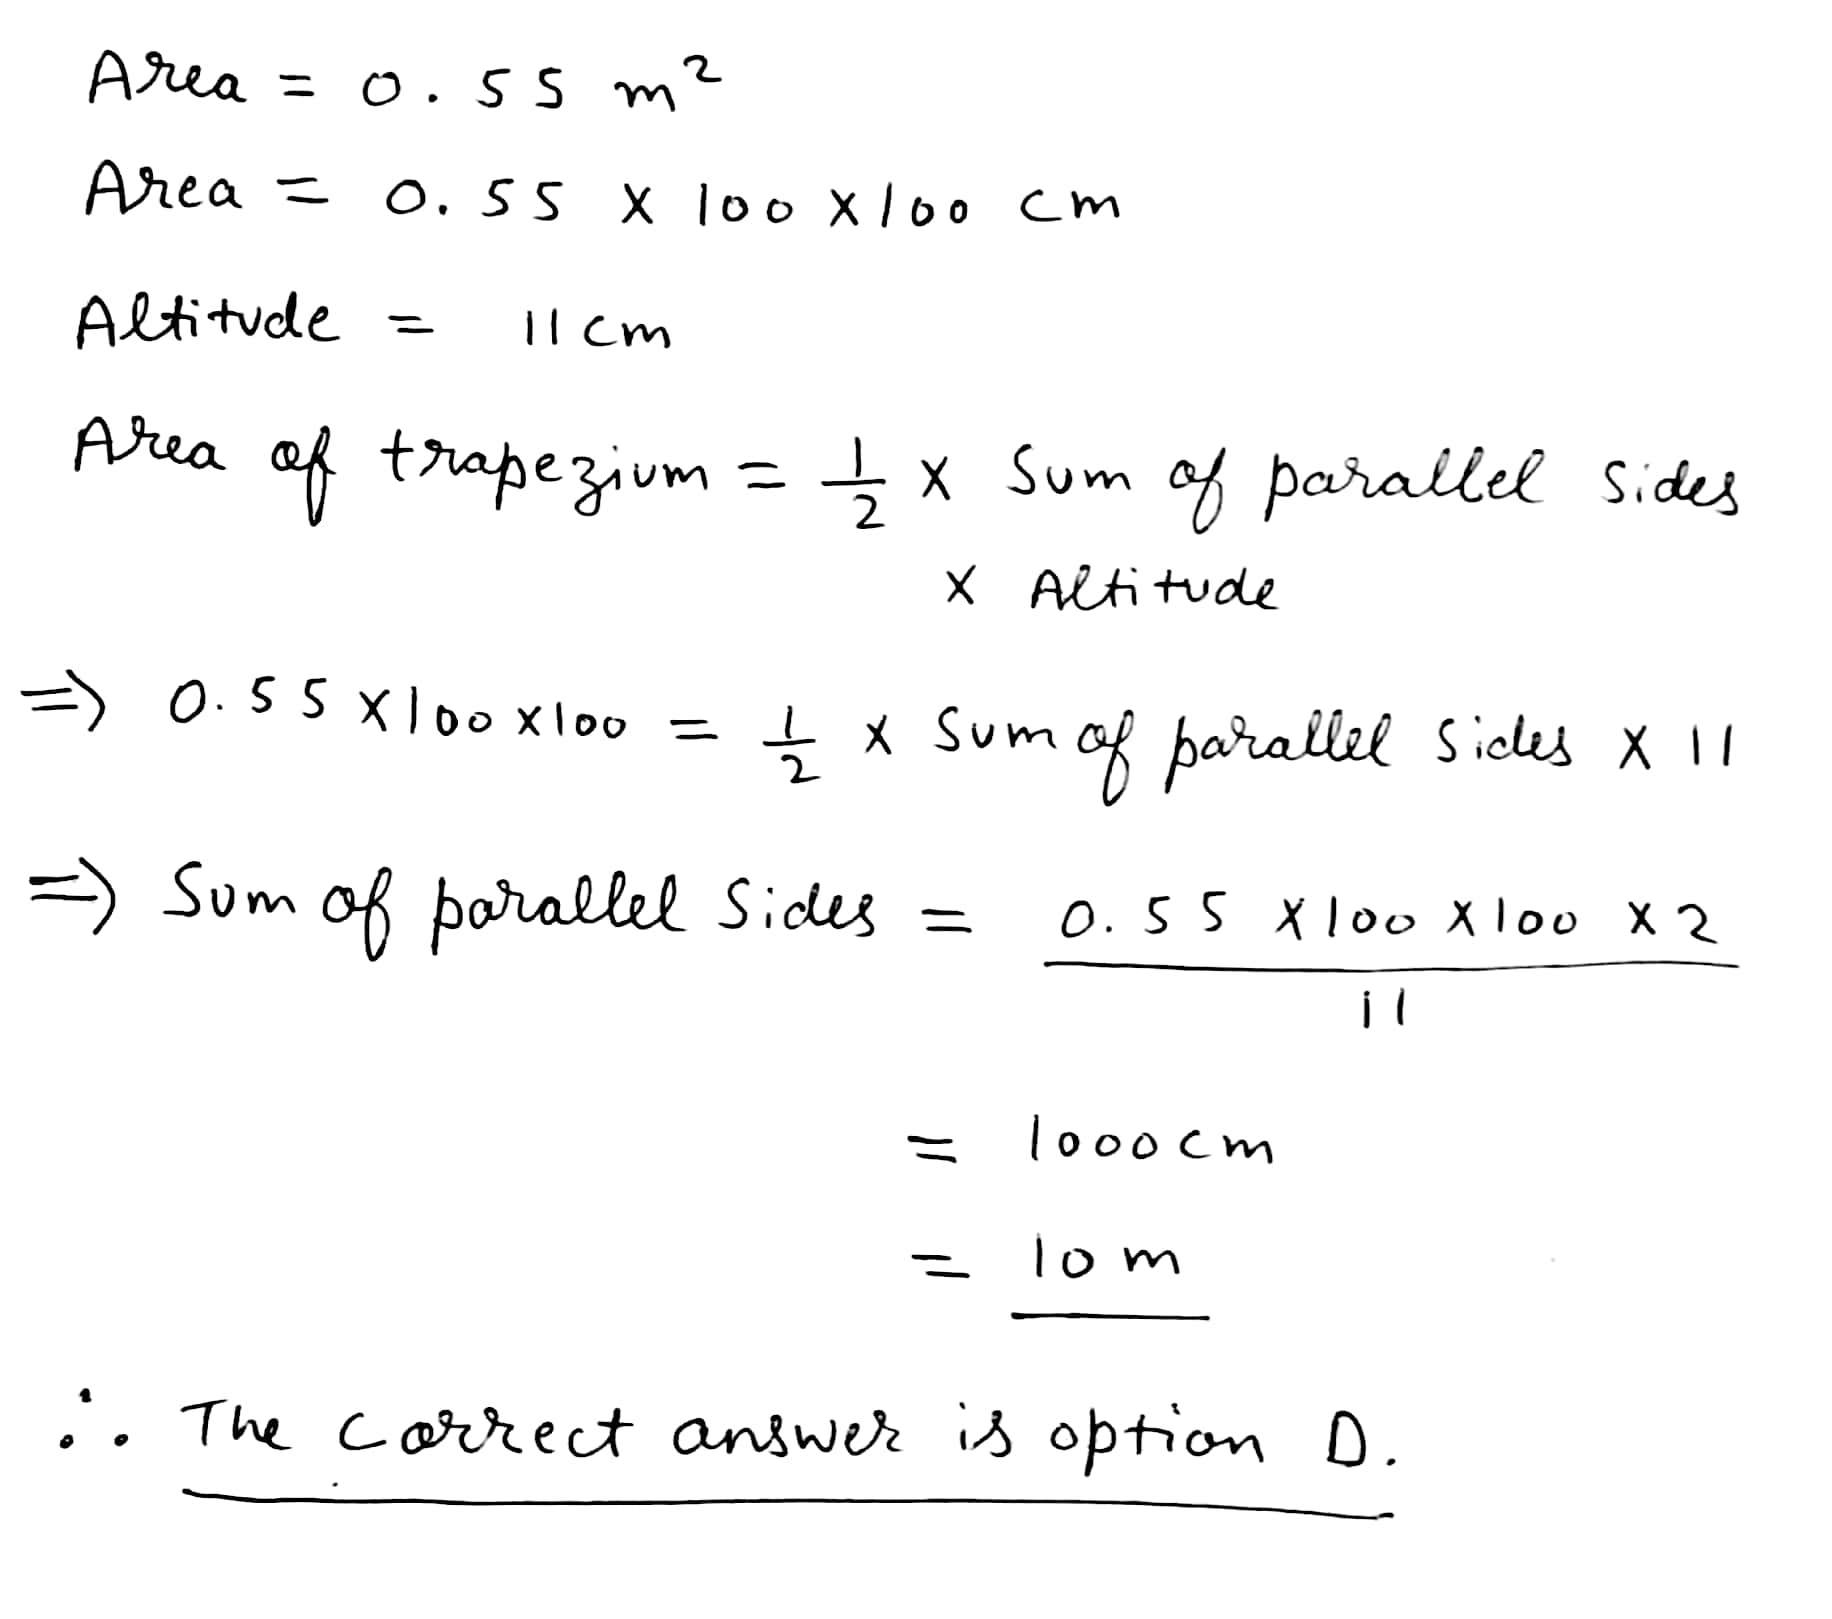 Area = 0.55 m²
Area = 0.55 × 100 × 100 cm
Altitude = 11 cm
Area of trapezium = 1/2 × Sum of parallel sides
× Altitude
⇒ 0.55 × 100 × 100 = 1/2 × Sum of parallel sides × 11
⇒ Sum of parallel sides = 0.55 × 100 × 100 × 2 / 11
= 1000 cm
= 10 m
∴ The correct answer is option D.